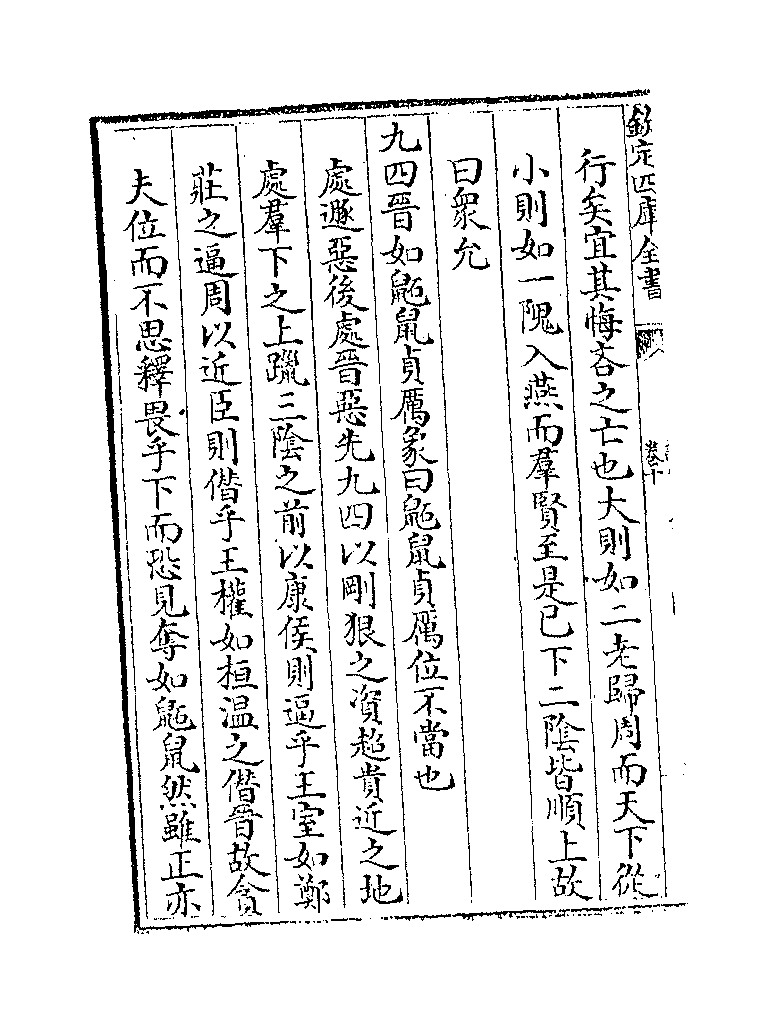 欽定四庫全書
卷十
行矣宜其悔吝之亡也大則如二老歸周而天下從
小則如一隗入燕而羣賢至是已下二陰皆順上故
曰衆允
九四晉如鼫鼠貞厲象曰鼫鼠貞厲位不當也
處遯惡後處晉惡先九四以剛狠之資超貴近之地
處羣下之上躐三陰之前以康侯則逼乎王室如鄭
莊之逼周以近臣則僭乎王權如桓温之僭晉故貪
夫位而不思釋畏乎下而恐見奪如鼫鼠然雖正亦